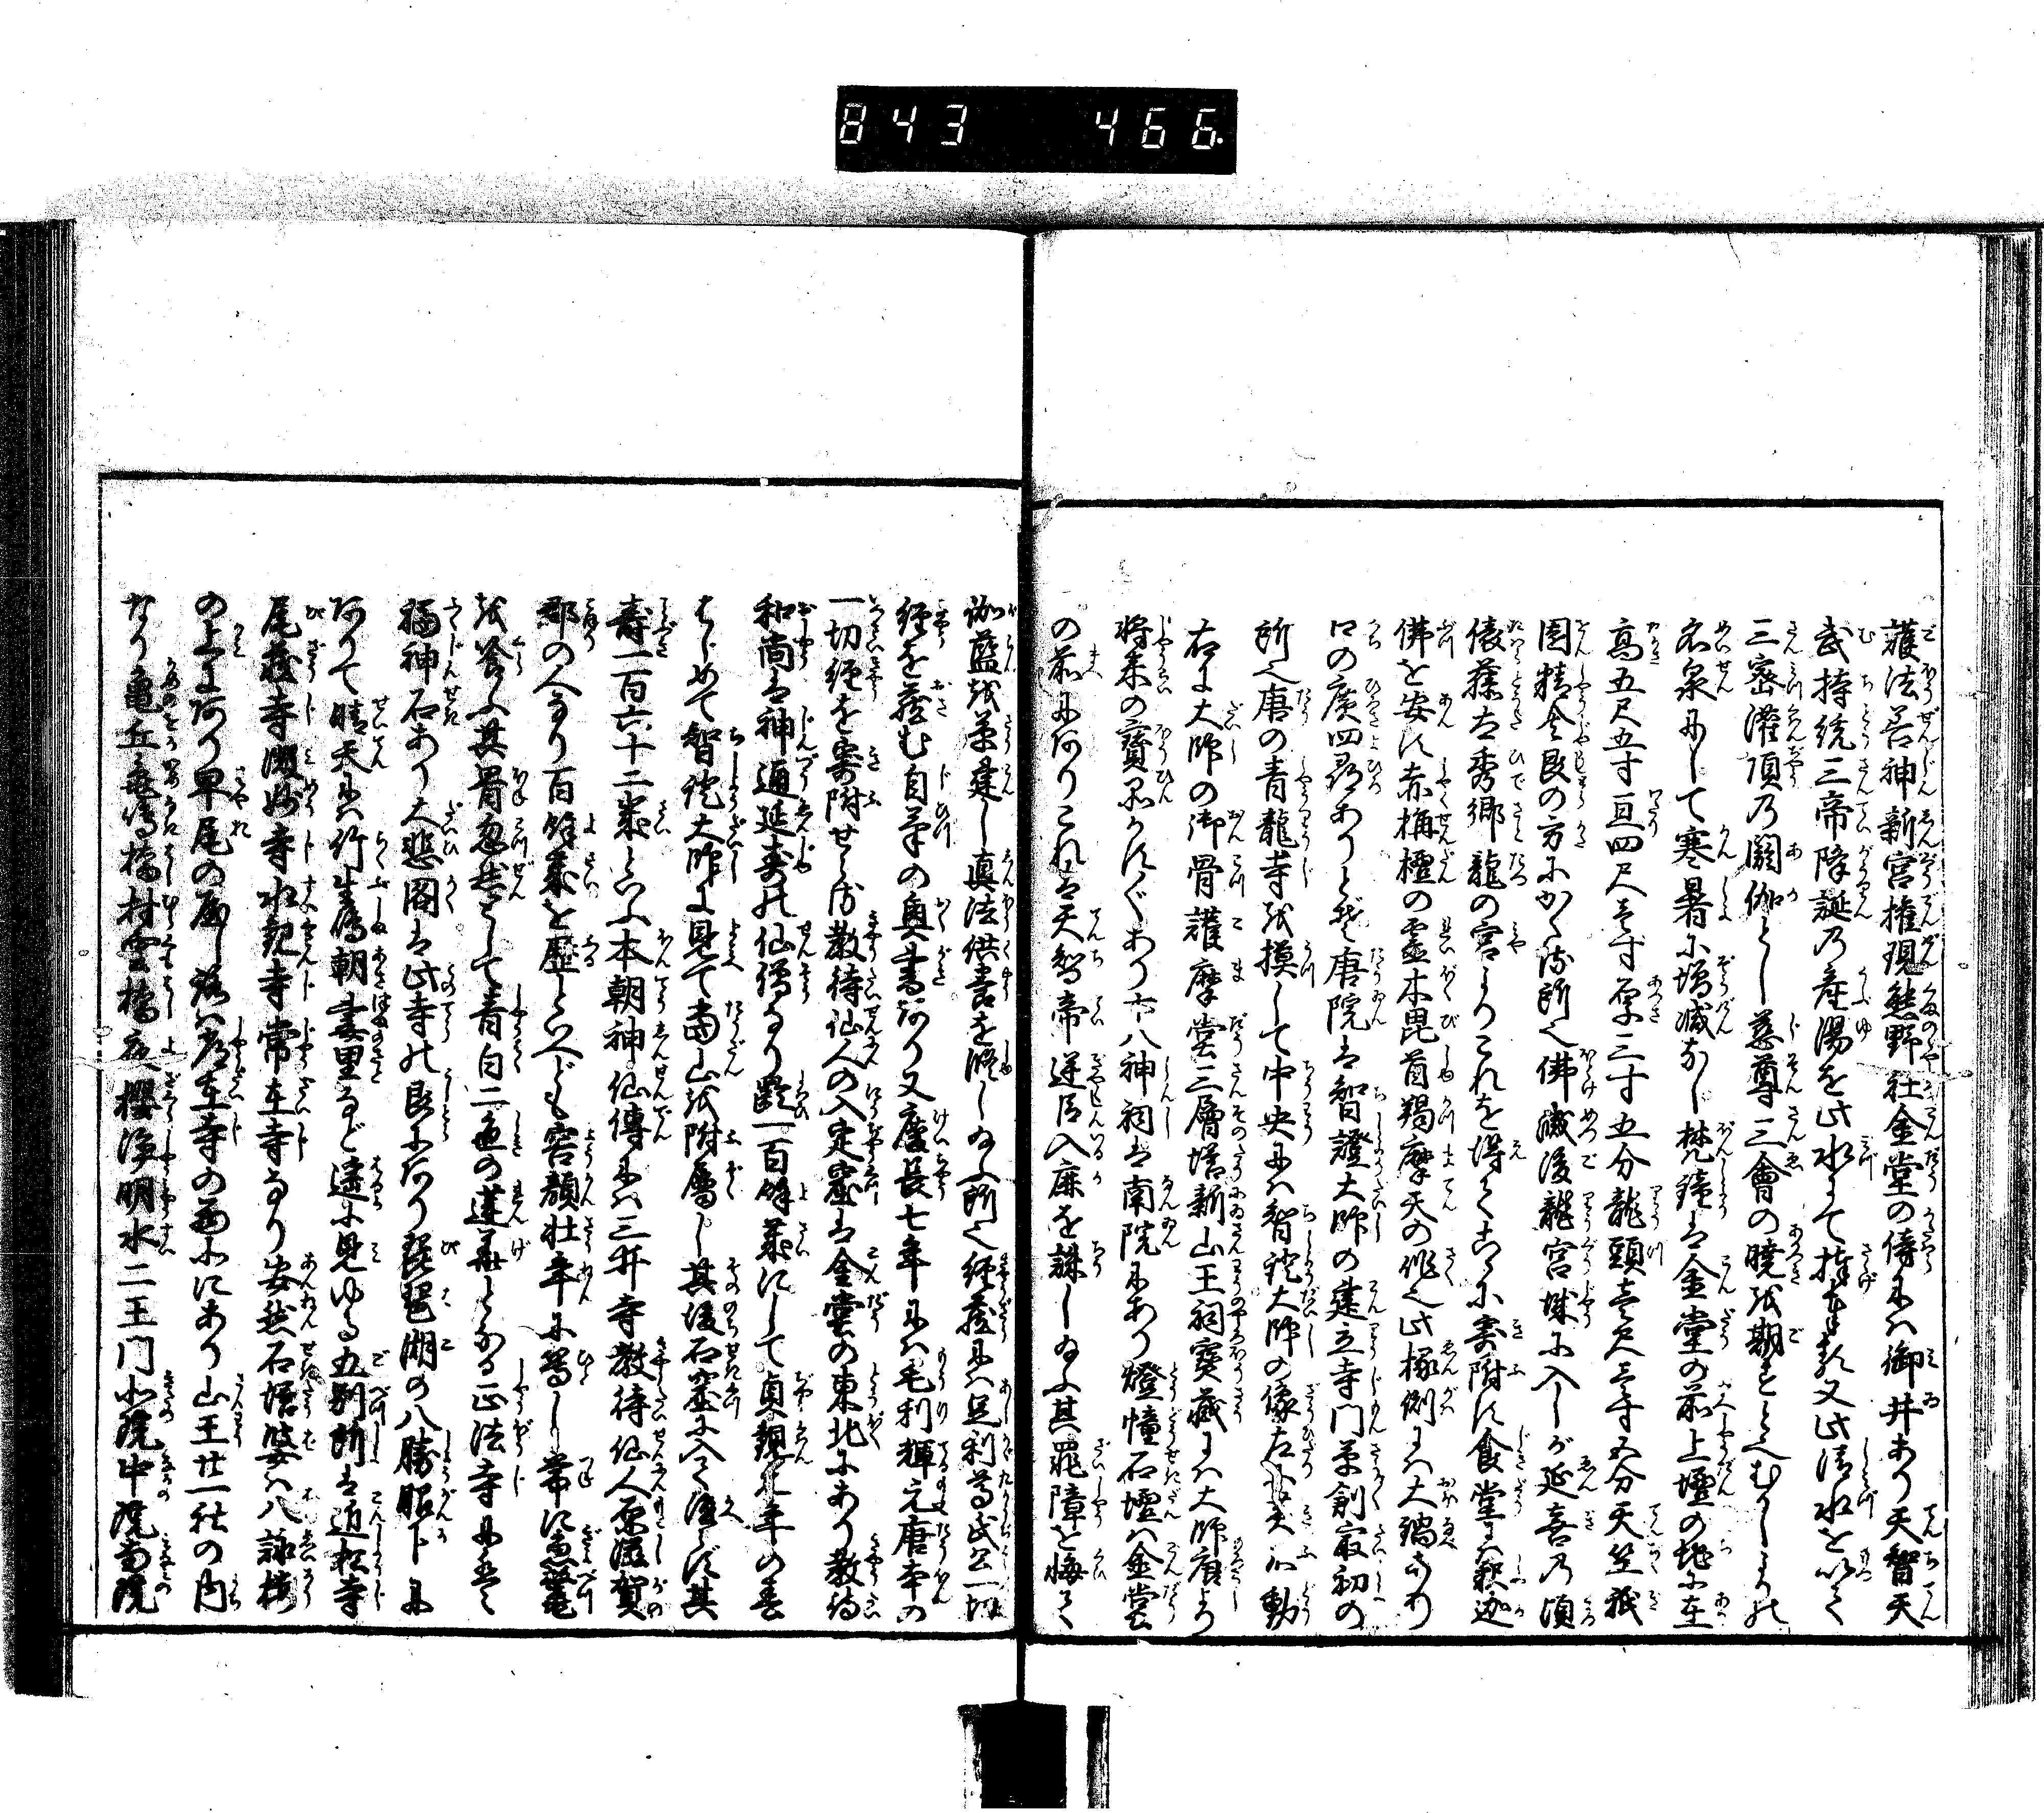 843 466.
護法善神新宮権現熊野社金堂の傍にハ御井あり天智天
武持統三帝降誕乃産湯を此水にて捧奉る又此清水を以て
三密潅頂乃閼伽とし慈尊三會の暁を期すといふむかしよりの
名泉にして寒暑に増減なし梵鐘は金堂の前上壇の地に在
高五尺五寸亘四尺壱寸厚三寸五分龍頭壱尺壱寸五分天竺祇
園精舎艮の方にかくる所也佛滅後龍宮城に入しが延喜乃頃
俵藤太秀郷龍の宮よりこれを得てこゝに寄附す食堂にハ釈迦
佛を安す赤栴檀の霊木毘首羯摩天の作也此椽側にハ大鍋あり
口の廣四尋ありとぞ唐院は智證大師の建立寺門草創最初の
所也唐の青龍寺を摸して中央にハ智證大師の像左に黄不動
右に大師の御骨護摩堂三層塔新山王祠寶蔵にハ大師唐より
将来の寶品かす〴〵あり十八神祠は南院にあり燈幢石壇ハ金堂
の前にありこれは天智帝逆臣入鹿を誅し給ふ其罪障を悔て
伽藍を草建し真法供養を修し給ふ所也経蔵にハ足利尊氏公一切
経を蔵む自筆の奥書あり又慶長七年にハ毛利輝元唐本の
一切経を寄附せらる教待仙人の入定窟は金堂の東北にあり教待
和尚は神通延寿の仙僧なり齢一百餘歳にして貞観元年の春
はじめて智證大師に見て当山を附属し其後石窟に入て隠れず其
壽一百六十二歳といふ本朝神仙傳にハ三井寺教待仙人原滋賀
郡の人なり百餘歳を歴といへども容顔壮年に等し常に魚鼈
を飡ふ其骨忽然として青白二色の蓮華となる正法寺にハ
福神石あり大悲閣は此寺の艮にあり琵琶湖の八勝眼下に
ありて晴天にハ竹生嶋朝妻里など遠に見ゆる五別所は近松寺
尾蔵寺微妙寺水観寺常在寺なり安然石塔婆ハ八詠楼
の上にあり早尾の廟し
の内
なり亀丘亀嶋橋村雲橋夜櫻浄明水二王門北院中院南院